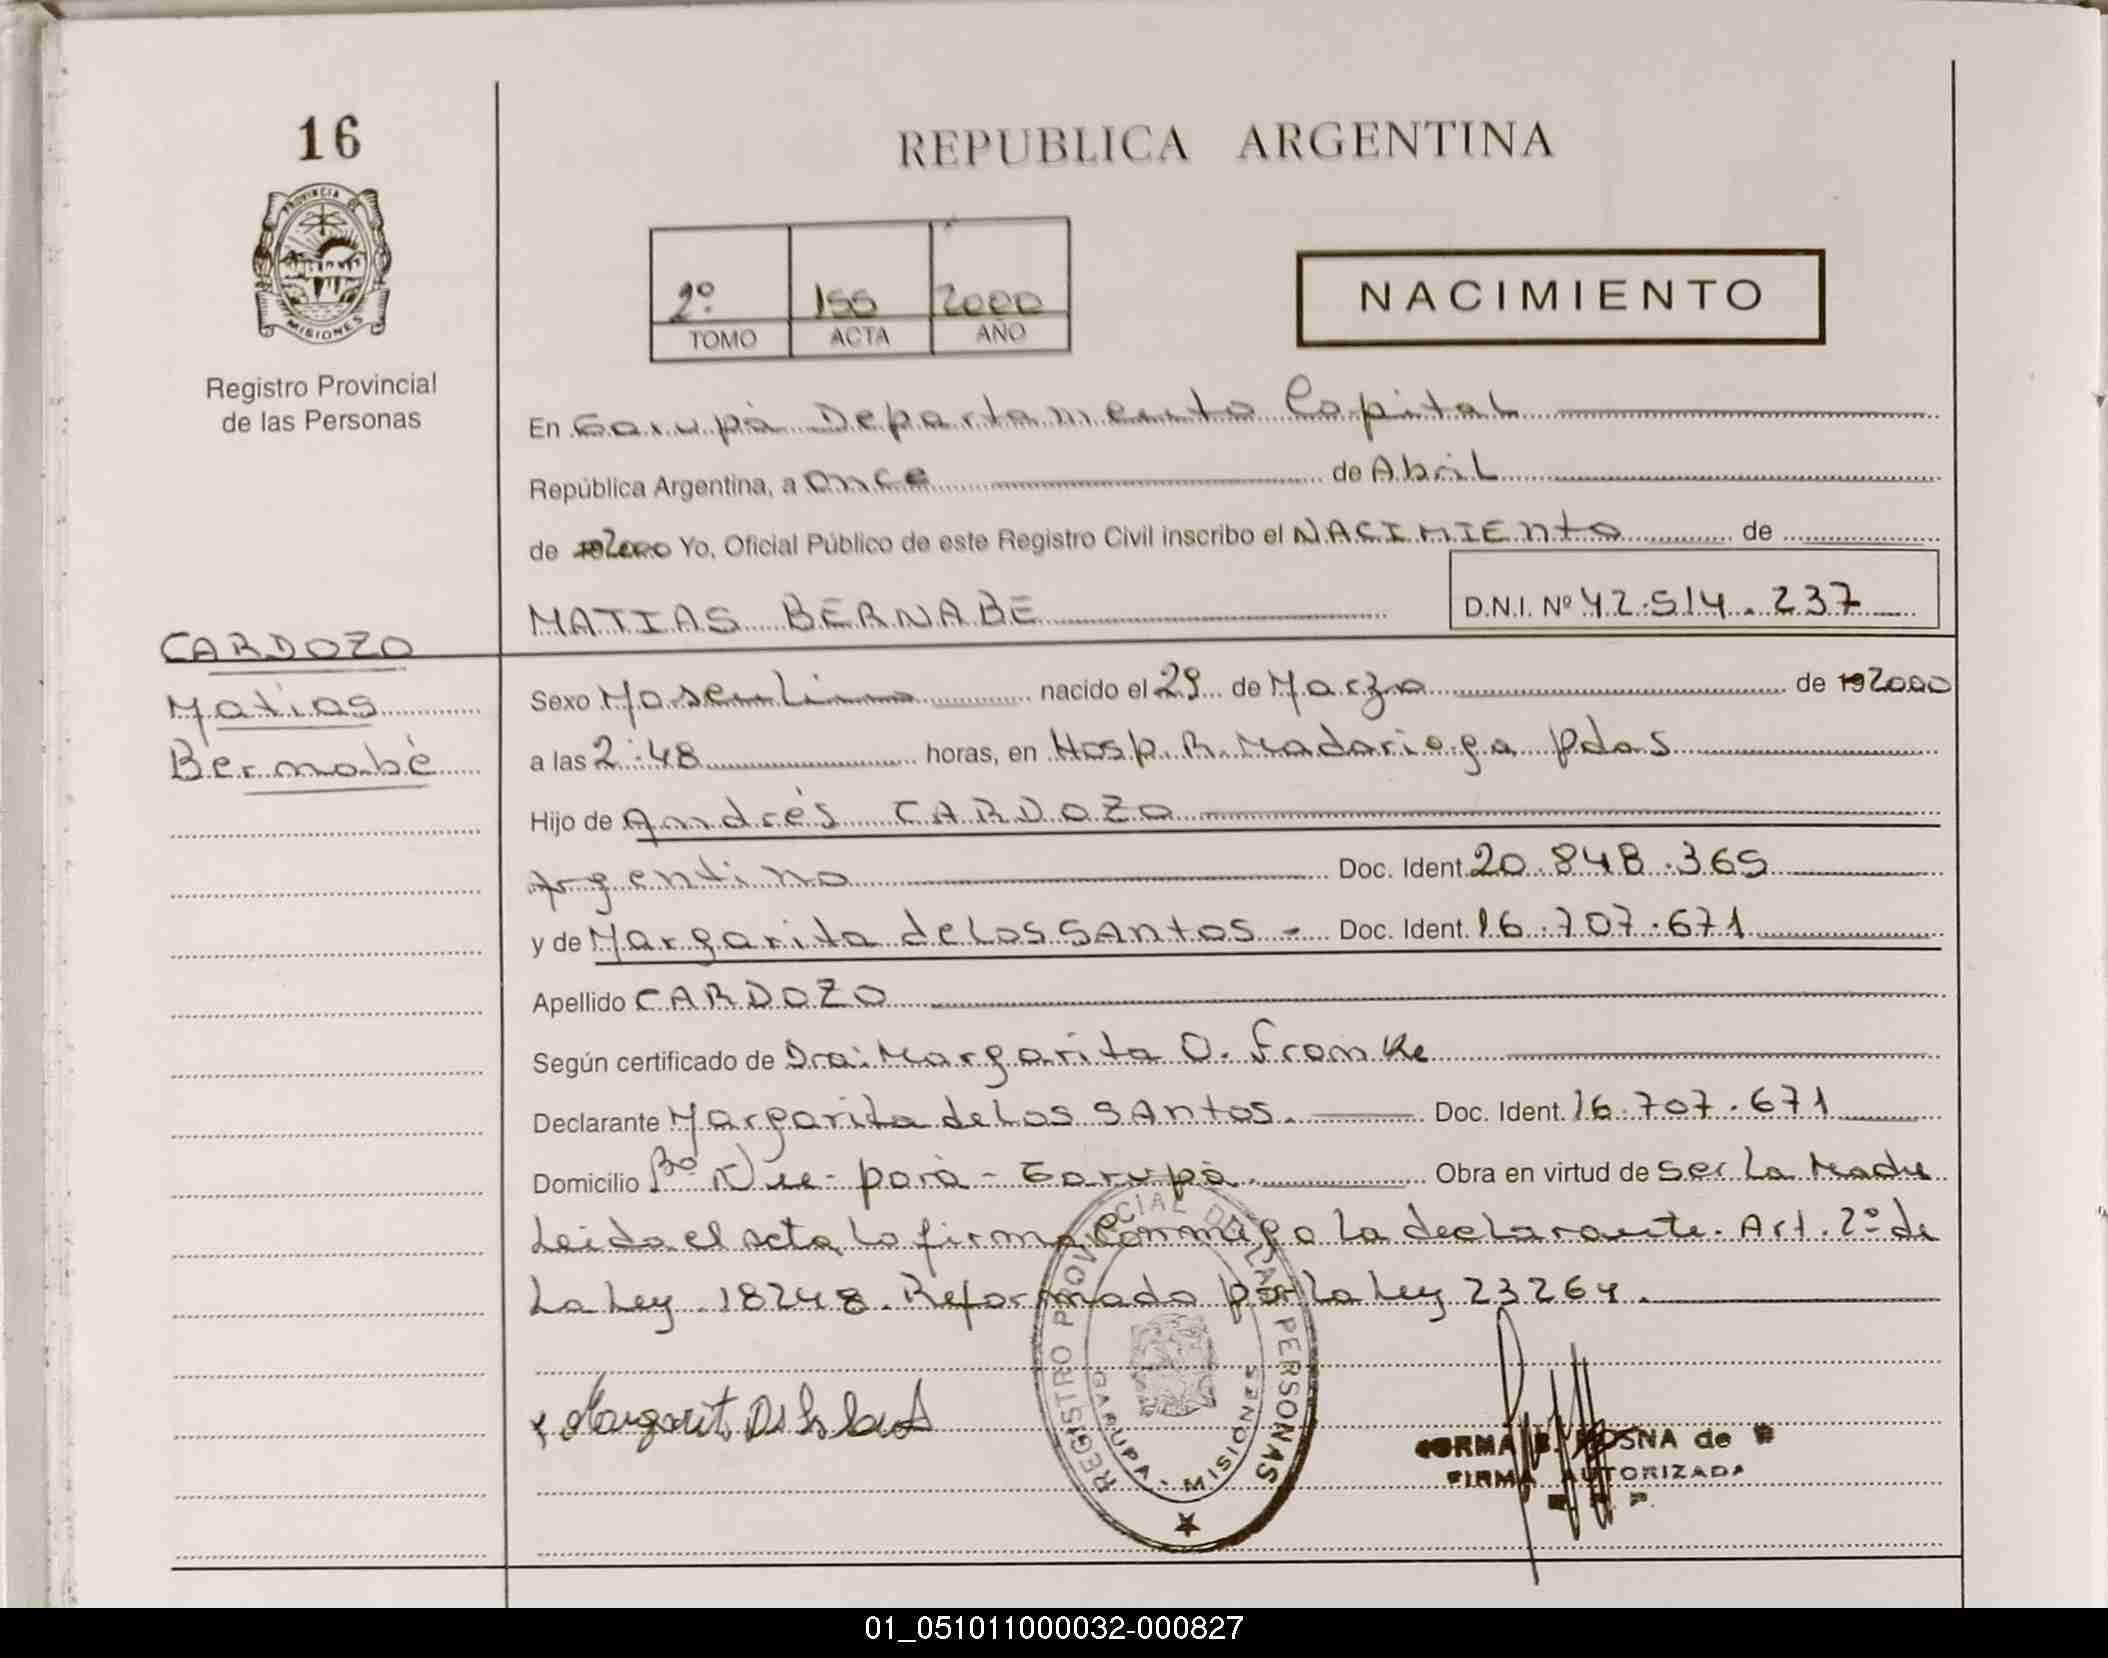 16
PROVINCIA DE
MISIONES
Registro Provincial
de las Personas
REPUBLICA ARGENTINA
2º 155 2000
TOMO ACTA AÑO
NACIMIENTO
En Garupá Departamento Capital
República Argentina, a once de Abril
de 192000 Yo, Oficial Público de este Registro Civil inscribo el NACIMIENto de
MATIAS BERNABE D.N.I. Nº 42.514.237
CARDOZO
Matias
Bernabé
Sexo Masculino nacido el 29 de Marzo de 192000
a las 2:48 horas, en Hosp. R. Madariaga pdas
Hijo de Andrés CARDOZO
Argentino Doc. Ident. 20.848.365
y de Margarita de Los SAntos - Doc. Ident. 16.707.671
Apellido CARDOZO
Según certificado de Dra: Margarita O. Fromke
Declarante Margarita de Los SAntos. Doc. Ident. 16.707.671
Domicilio Bº Ñu-porá - Garupá. Obra en virtud de ser La Madre
Leida el acta, Lo firma conmigo La declarante. Art. 2º de
La Ley 18248. Reformado por La Ley 23264.
REGISTRO PROVINCIAL DE LAS PERSONAS
GARUPA - MISIONES
Margarit De Lo Sant
NORMA B. ROSNA de
FIRMA AUTORIZADA
P.
01_051011000032-000827